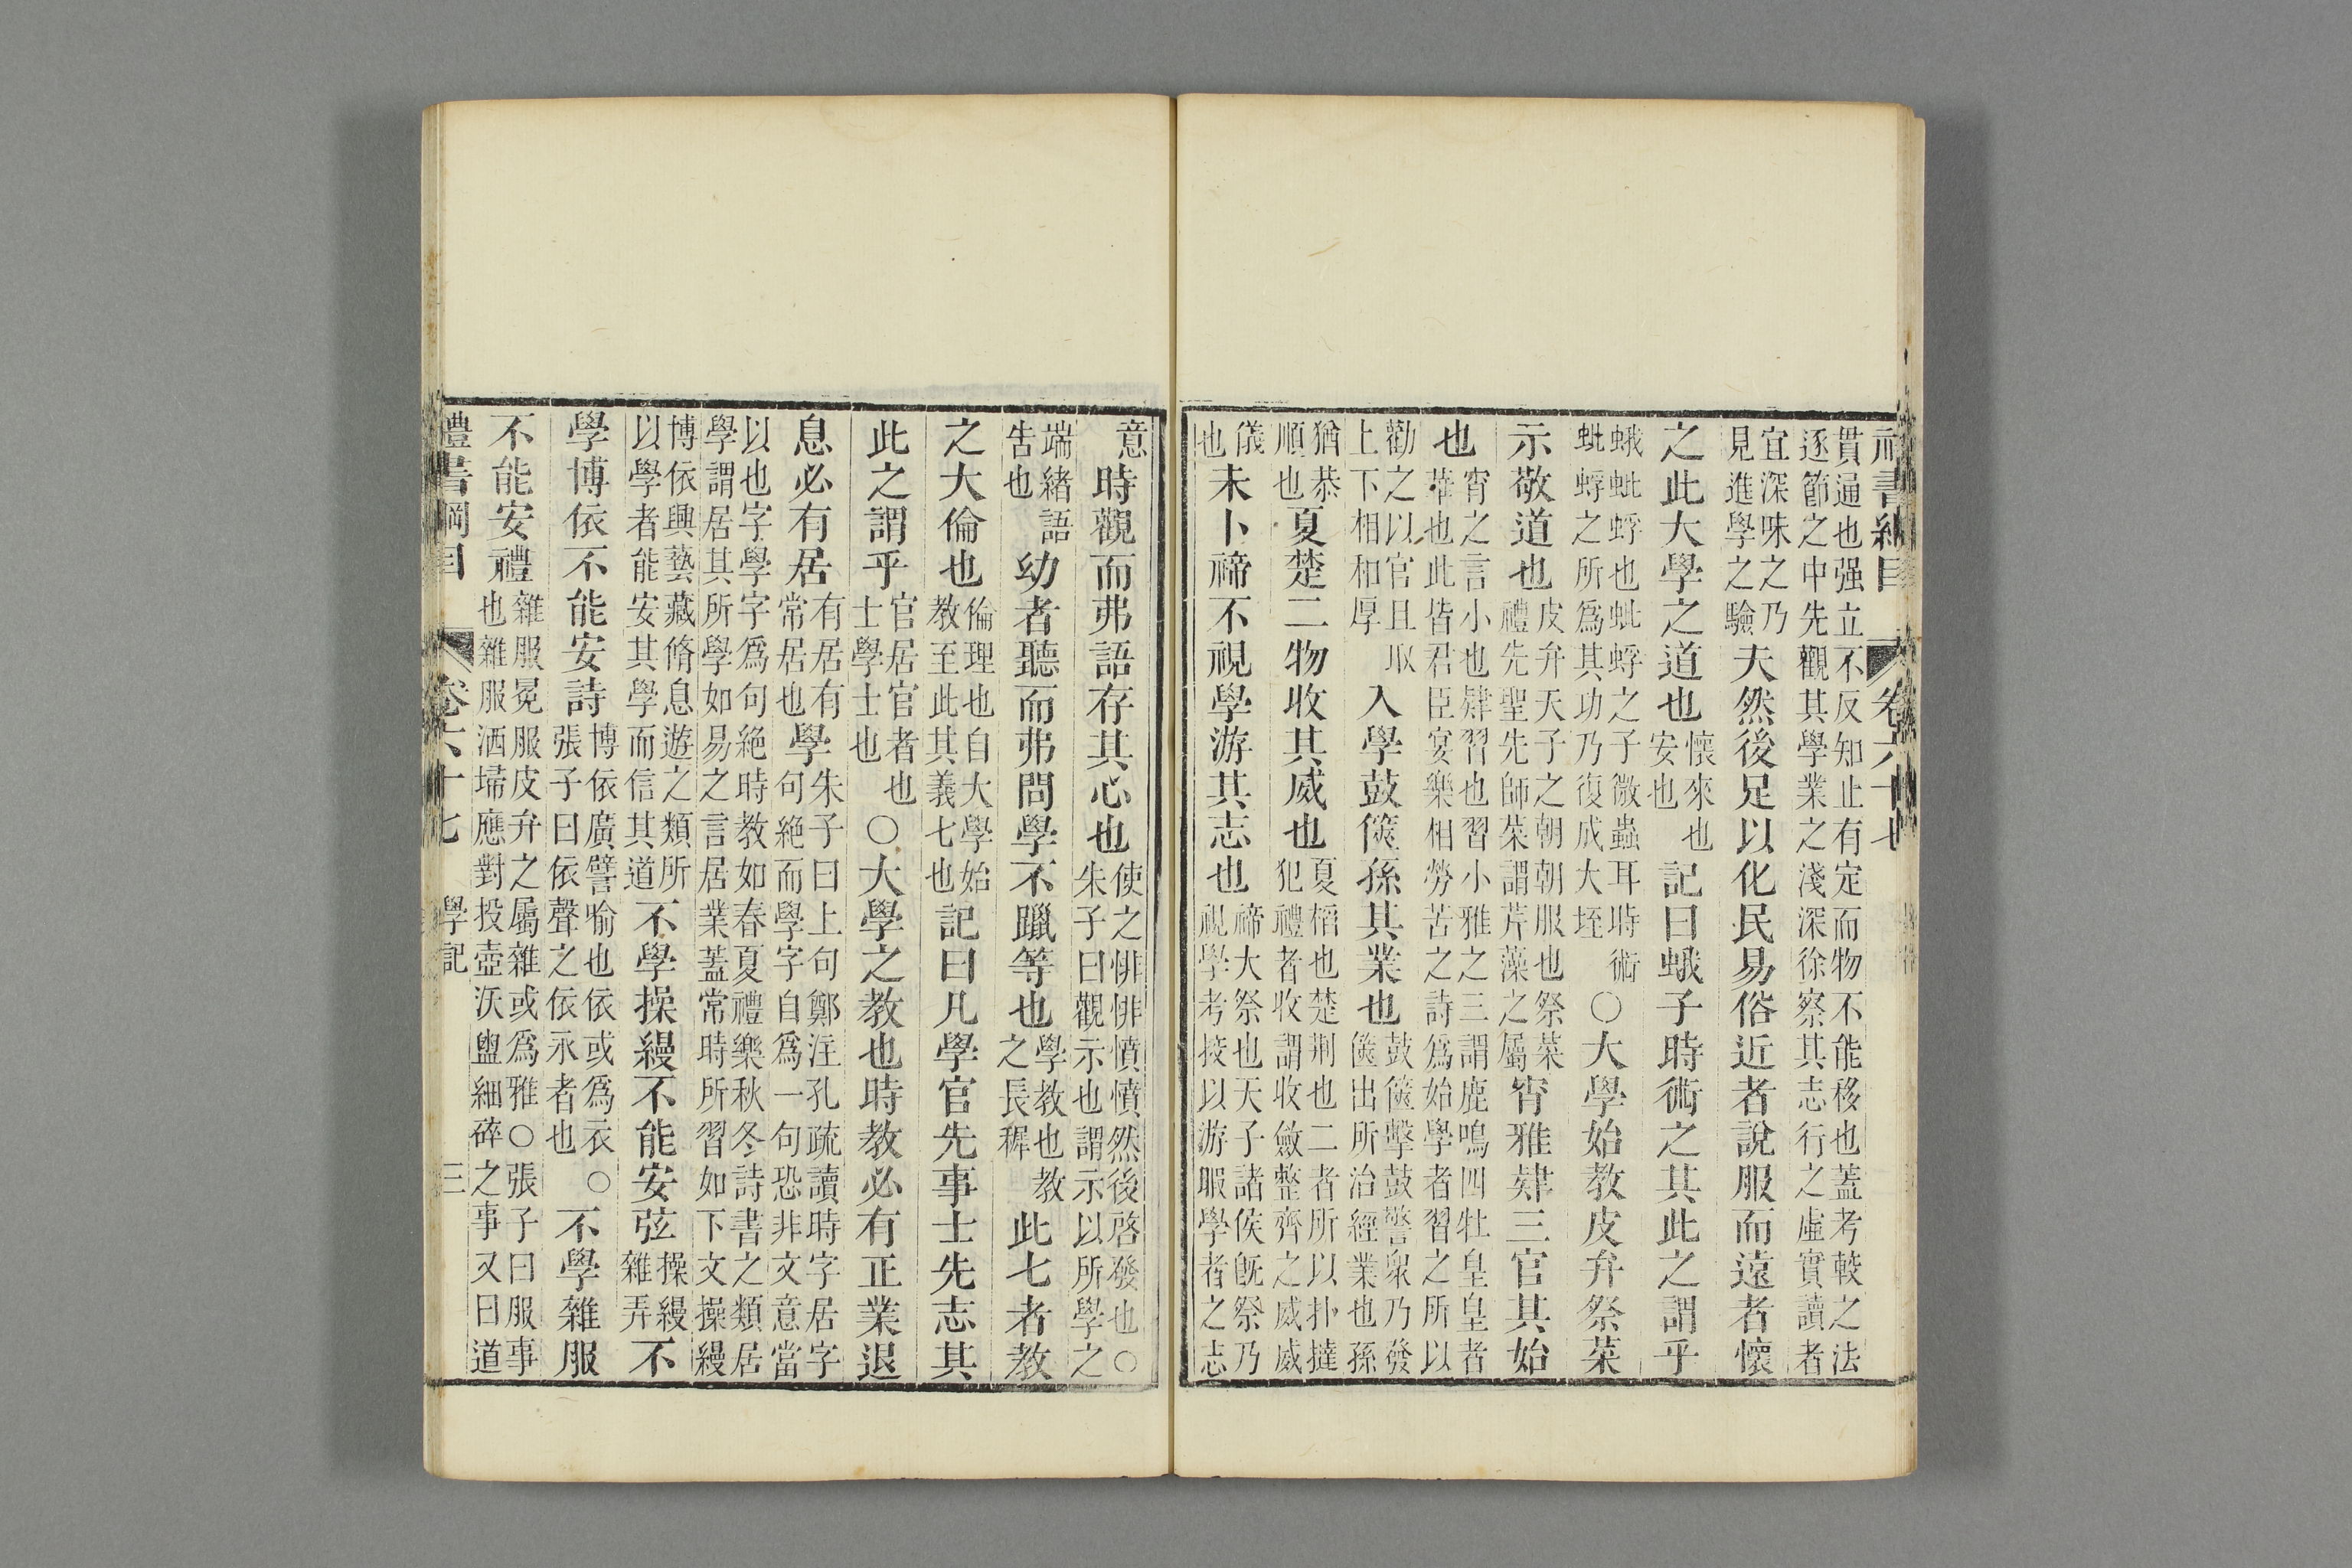 禮書綱目 卷六十七
貫通也强立不反知止有定而物不能移也蓋考較之法
逐節之中先觀其學業之淺深徐察其志行之虛實讀者
宜深味之乃
見進學之驗
夫然後足以化民易俗近者說服而遠者懷
之此大學之道也
懷來也
安也
記曰蛾子時術之其此之謂乎
蛾蚍蜉也蚍蜉之子微蟲耳時術
蚍蜉之所爲其功乃復成大垤
○大學始教皮弁祭菜
示敬道也
皮弁天子之朝朝服也祭菜
禮先聖先師菜謂芹藻之屬
宵雅肄三官其始
也
宵之言小也肄習也習小雅之三謂鹿鳴四牡皇皇者
華也此皆君臣宴樂相勞苦之詩爲始學者習之所以
勸之以官且取
上下相和厚
入學鼓篋孫其業也
鼓篋擊鼓警衆乃發
篋出所治經業也孫
猶恭
順也
夏楚二物收其威也
夏榎也楚荆也二者所以扑撻
犯禮者收謂收斂整齊之威威
儀
也
未卜禘不視學游其志也
禘大祭也天子諸侯旣祭乃
視學考挍以游暇學者之志
意
時觀而弗語存其心也
使之悱悱憤憤然後啓發也○
朱子曰觀示也謂示以所學之
端緒語
告也
幼者聽而弗問學不躐等也
學教也教
之長穉
此七者教
之大倫也
倫理也自大學始
教至此其義七也
記曰凡學官先事士先志其
此之謂乎
官居官者也
士學士也
○大學之教也時教必有正業退
息必有居
有居有
常居也
學
朱子曰上句鄭注孔疏讀時字居字
句絶而學字自爲一句恐非文意當
以也字學字爲句絶時教如春夏禮樂秋冬詩書之類居
學謂居其所學如易之言居業蓋常時所習如下文操縵
博依興藝藏脩息遊之類所
以學者能安其學而信其道
不學操縵不能安弦
操縵
雜弄
不
學博依不能安詩
博依廣譬喻也依或爲衣○
張子曰依聲之依永者也
不學雜服
不能安禮
雜服冕服皮弁之屬雜或爲雅○張子曰服事
也雜服洒埽應對投壺沃盥細碎之事又曰道
禮書綱目 卷六十七 學記 三